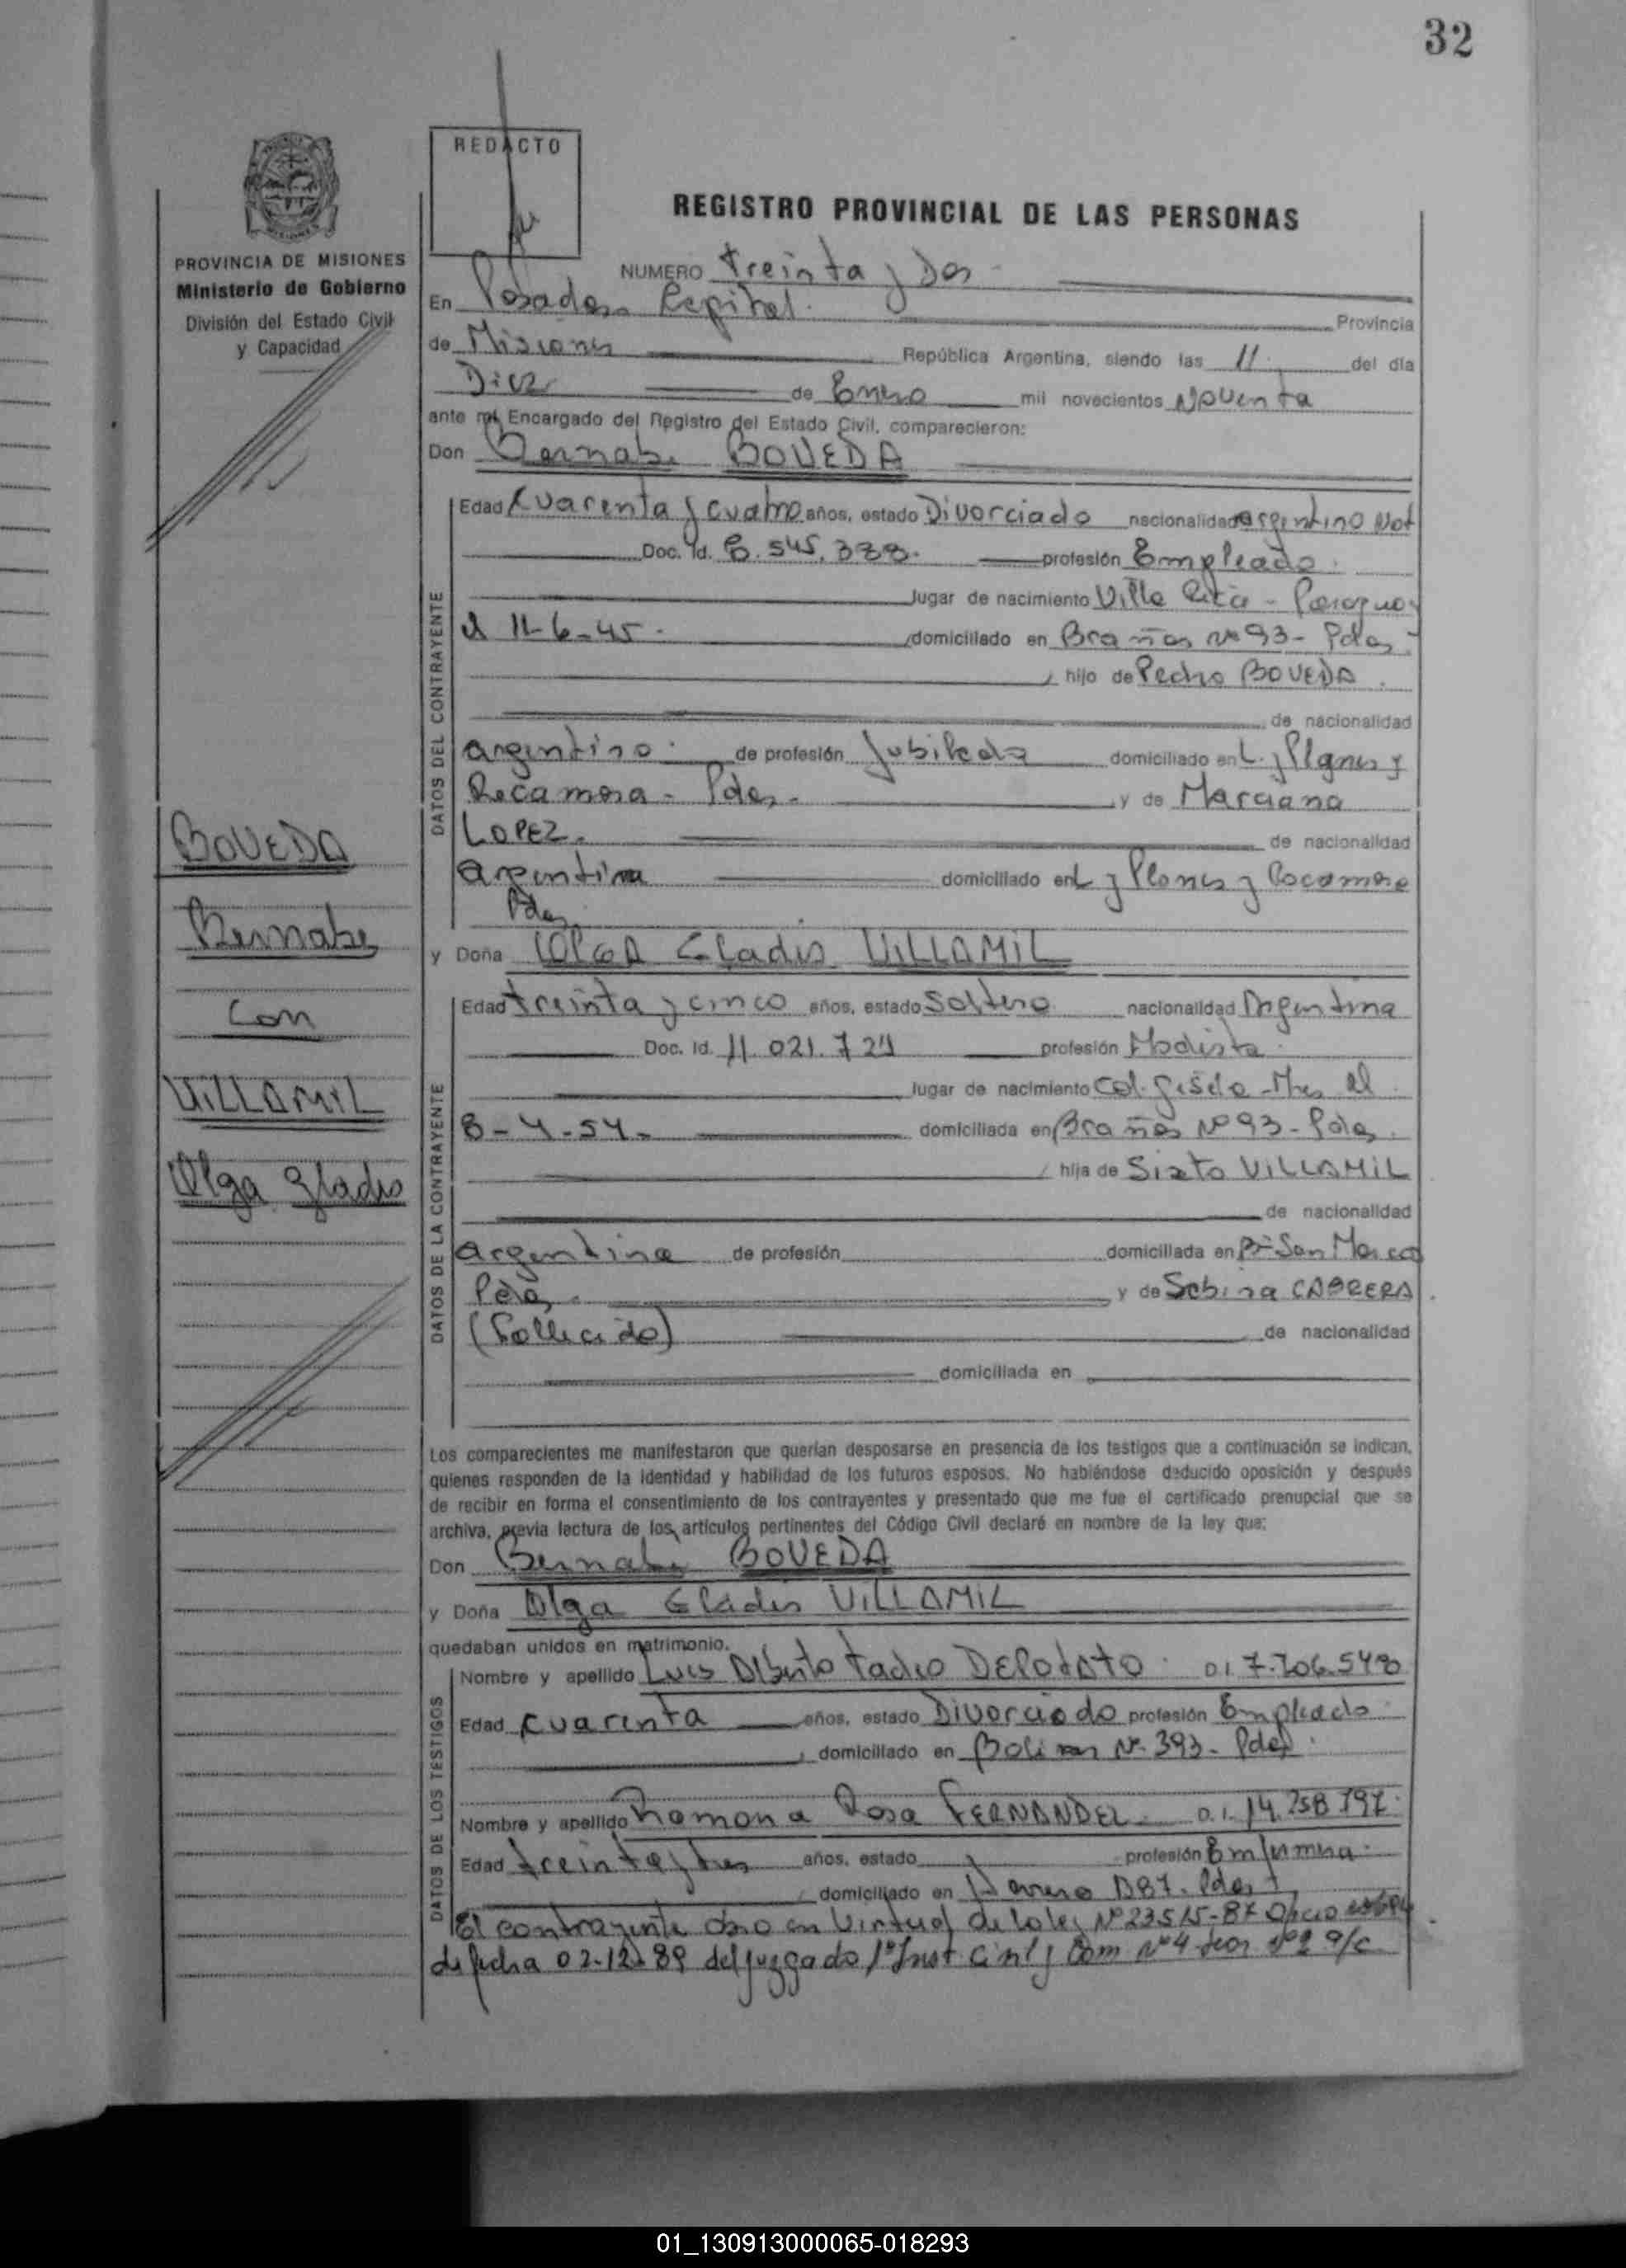 32
REDACTO
REGISTRO PROVINCIAL DE LAS PERSONAS
PROVINCIA DE MISIONES
Ministerio de Gobierno
División del Estado Civil
y Capacidad
NUMERO treinta y Dos
En Posadas Capital Provincia
de Misiones República Argentina, siendo las 11 del día
Diez de Enero mil novecientos Noventa
ante mí, Encargado del Registro del Estado Civil, comparecieron:
Don Bernabe BOVEDA
Edad Cuarenta y cuatro años, estado Divorciado nacionalidad argentino Nat
Doc. Id. 8.545.388. profesión Empleado.
lugar de nacimiento Villa Rica - Paraguay
el 11-6-45. domiciliado en Brañas Nº 93 - Pdas.
hijo de Pedro BOVEDA.
de nacionalidad
argentino. de profesión Jubilado domiciliado en L. y Planes y
Rocamora - Pdas. y de Marciana
LOPEZ. de nacionalidad
argentina domiciliado en L y Planes y Rocamora
Pdas
y Doña OLGA Gladis VILLAMIL
Edad treinta y cinco años, estado Soltera nacionalidad Argentina
Doc. Id. 11.021.724 profesión Modista.
lugar de nacimiento Col. Gisela - Mnes el
8-4-54. domiciliada en Brañas Nº 93 - Pdas.
hija de Sixto VILLAMIL
de nacionalidad
argentina de profesión domiciliada en Bº San Marcos
Pdas. y de Sabina CABRERA.
(Fallecida) de nacionalidad
domiciliada en
BOVEDA
Bernabe
Con
VILLAMIL
Olga Gladis
Los comparecientes me manifestaron que querían desposarse en presencia de los testigos que a continuación se indican,
quienes responden de la identidad y habilidad de los futuros esposos. No habiéndose deducido oposición y después
de recibir en forma el consentimiento de los contrayentes y presentado que me fue el certificado prenupcial que se
archiva, previa lectura de los artículos pertinentes del Código Civil declaré en nombre de la ley que:
Don Bernabe BOVEDA
y Doña Olga Gladis VILLAMIL
quedaban unidos en matrimonio.
Nombre y apellido Luis Alberto Tadeo D.I. 7.706.548
Edad Cuarenta años, estado Divorciado profesión Empleado.
domiciliado en Bolivar Nº 393 - Pdas.
Nombre y apellido Ramona Rosa FERNANDEZ. D.I. 14.258.797.
Edad treinta y tres años, estado profesión Enfermera.
domiciliado en Pdas
El contrayente en Virtud de la ley Nº 23.515-87 Oficio
de fecha 02-12-89 del juzgado 1º Inst. Civil y Com Nº 4
DATOS DEL CONTRAYENTE
DATOS DE LA CONTRAYENTE
DATOS DE LOS TESTIGOS
01_130913000065-018293